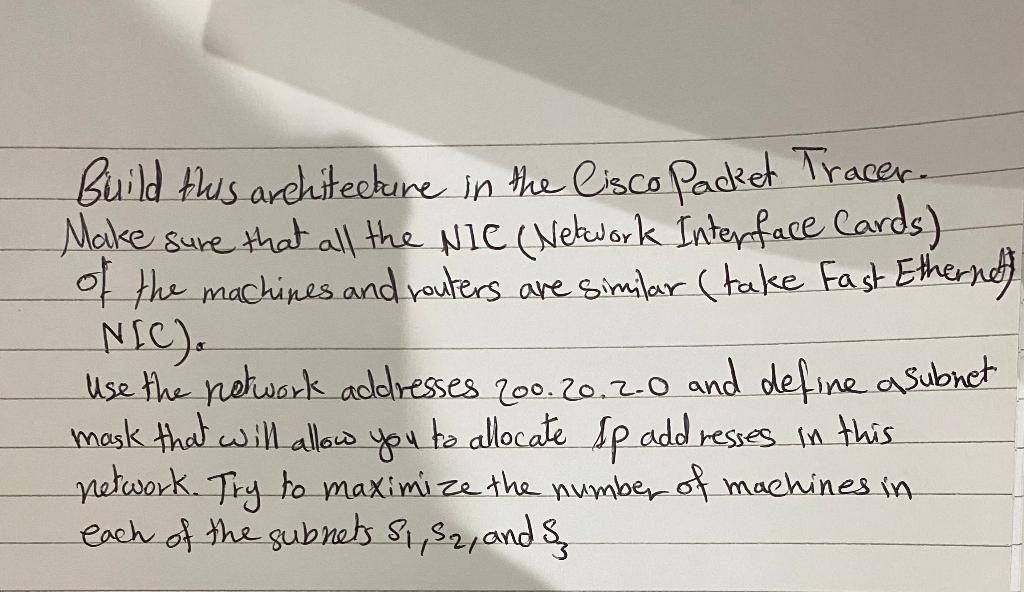 Build this architecture in the Cisco Packet Tracer.
Make sure that all the NIC (Network Interface Cards)
of the machines and routers are similar (take Fast Ethernet)
NIC).
Use the network addresses 200.20.2.0 and define a subnet
mask that will allow you to allocate Ip addresses in this
network. Try to maximize the number of machines in
each of the subnets S1, S2, and S3